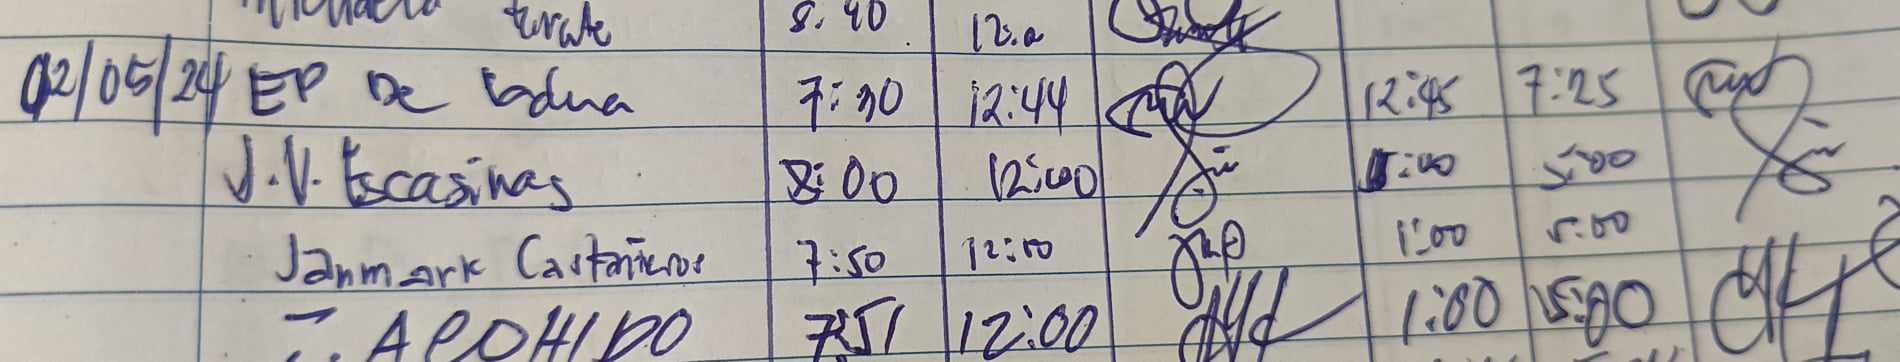 8:40 12:0
02/05/24 EP De Ladua 7:30 12:44 12:45 7:25
J.V. Escasinas 8:00 12:00 1:00 5:00
Janmark Castañeros 7:50 12:00 1:00 5:00
APOHIDO 7:51 12:00 1:00 5:00